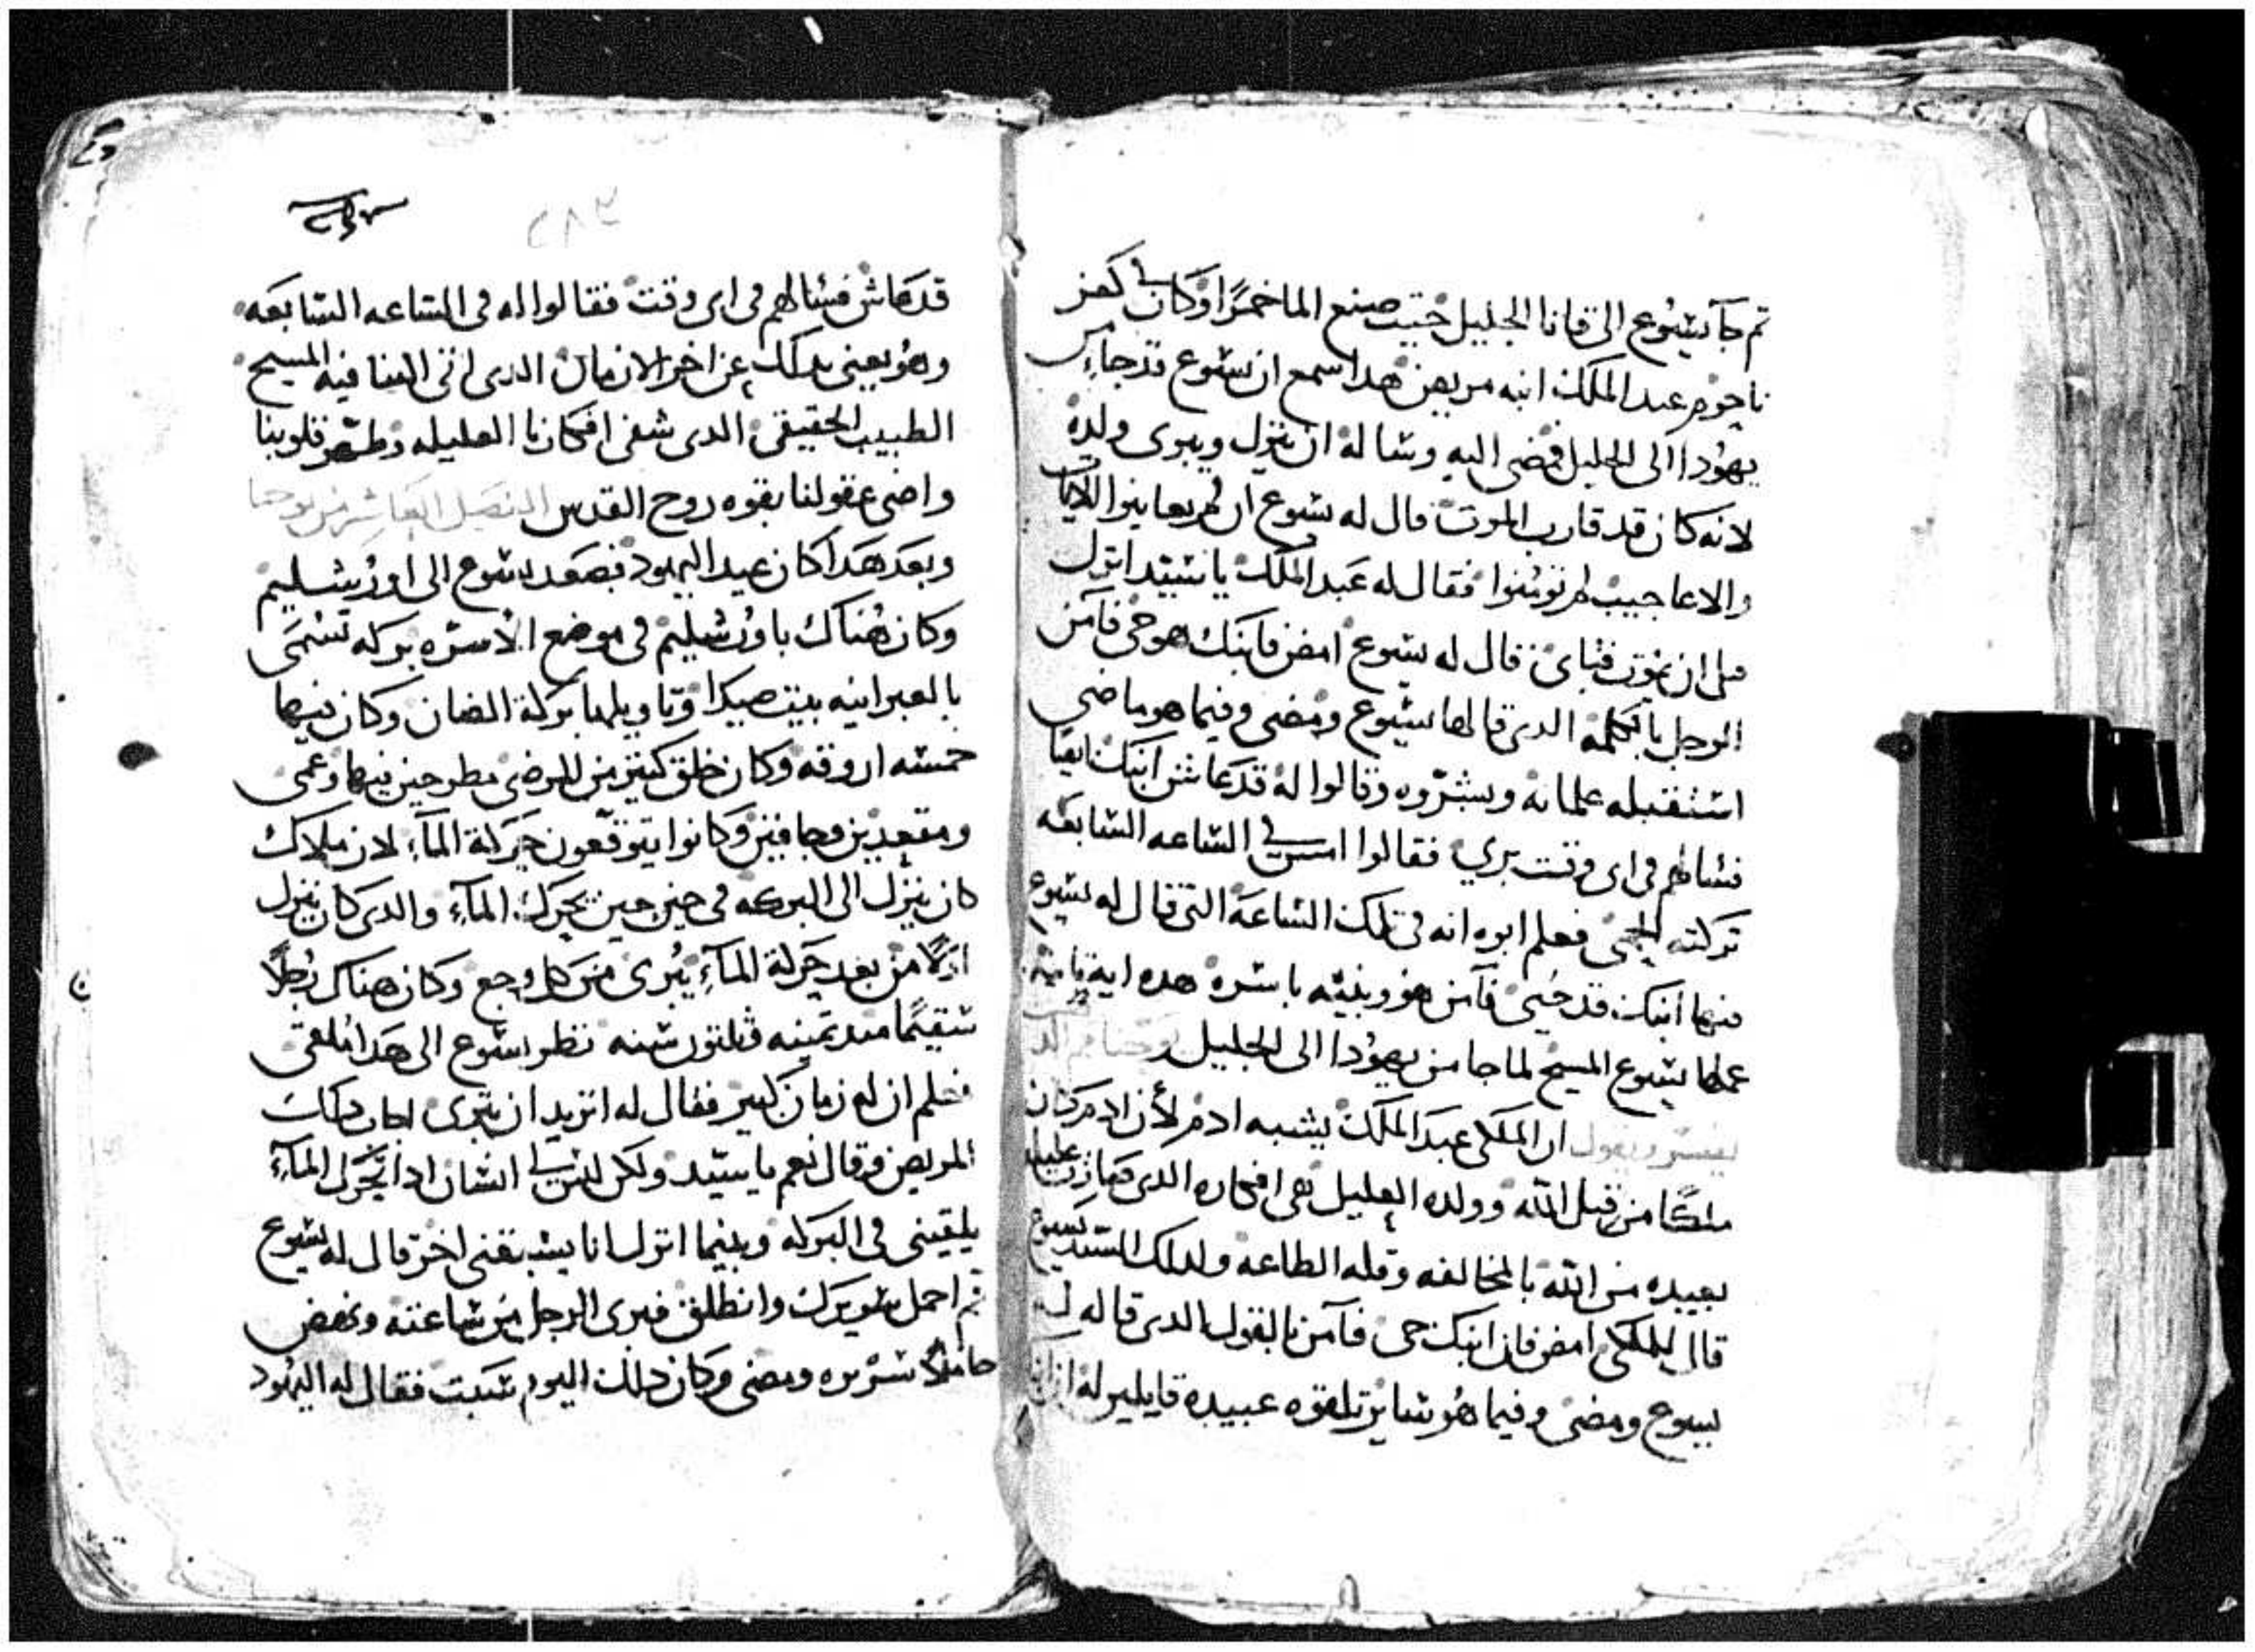 تم جآ يشوع الى قانا الجليل حيت صنع الما خمرًا وكان في كفر
ناحوم عبد الملك ابنه مريض هدا سمع ان يسوع قد جاء من
يهودا الى الجليل فمضى اليه وساله ان ينزل ويبرى ولده
لانه كان قد قارب الموت قال له يسوع ان لم تعاينوا الايات
والاعاجيب لم تومنوا فقال له عبد الملك يا سيد انزل
قبل ان يموت فتاى قال له يسوع امض فابنك هو حي فآمن
الرجل بالكلمه الدى قالها يسوع ومضى وفيما هو ماضى
استقبله غلمانه وبشروه وقالوا له قد عاش ابنك
فسالهم فى اى وقت برى فقالوا امس في الساعه السابعه
تركته الحمى فعلم ابوه انه فى تلك الساعة التى قال له يسوع
فيها ابنك قد حيى فآمن هو وبيته باسره هده ايه تانيه
عملها يسوع المسيح لما جا من يهودا الى الجليل
يفسر ويقول ان الملكى عبد الملك يشبه ادم لأن ادم كان
ملكًا من قبل الله وولده العليل هى افكاره الدى صارت عليله
ببعيده من الله بالمخالفه وقله الطاعه ولدلك السيد يسوع
قال للملكى امض فان ابنك حى فآمن بالقول الدى قاله له
يسوع ومضى وفيما هو سايرتلقوه عبيده قايلين له ان ابنك
قد عاش فسالهم فى اى وقت فقالوا له فى الساعه السابعه
وهو يعنى بدلك عن اخر الازمان الدى اتى الينا فيه المسيح
الطبيب الحقيقى الدى شفى افكارنا العليله وطهر قلوبنا
واضى عقولنا بقوه روح القدس الفصل العاشر من يوحنا
وبعد هدا كان عيد اليهود فصعد يسوع الى اورشليم
وكان هناك باورشليم فى موضع الاسره بركه تسمى
بالعبرانيه بيت صيدا وتاويلها بركة الضان وكان فيها
خمسه اروقه وكان خلق كتير من المرضى مطروحين فيها وعمى
ومقعدين وجافين وكانوا يتوقعون حركة المآء لان ملاك
كان ينزل الى البركه فى حين حين يحرك المآء والدى كان ينزل
اولًا من بعد حركة المآء يُبرى من كل وجع وكان هناك رجلًا
سقيمًا مند تمنيه وتلتون سنه نظر يسوع الى هدا ملقى
فعلم ان له زمان كبير فقال له اتريد ان تبرى اجاب دلك
المريض وقال نعم يا سيد ولكن ليس لي انسان ادا تحرك المآء
يلقينى فى البركه وبينما انزل انا يسبقنى اخر قال له يسوع
قم احمل سريرك وانطلق فبرى الرجل من ساعته ونهض
حاملًا سريره ومضى وكان دلك اليوم سبت فقال له اليهود